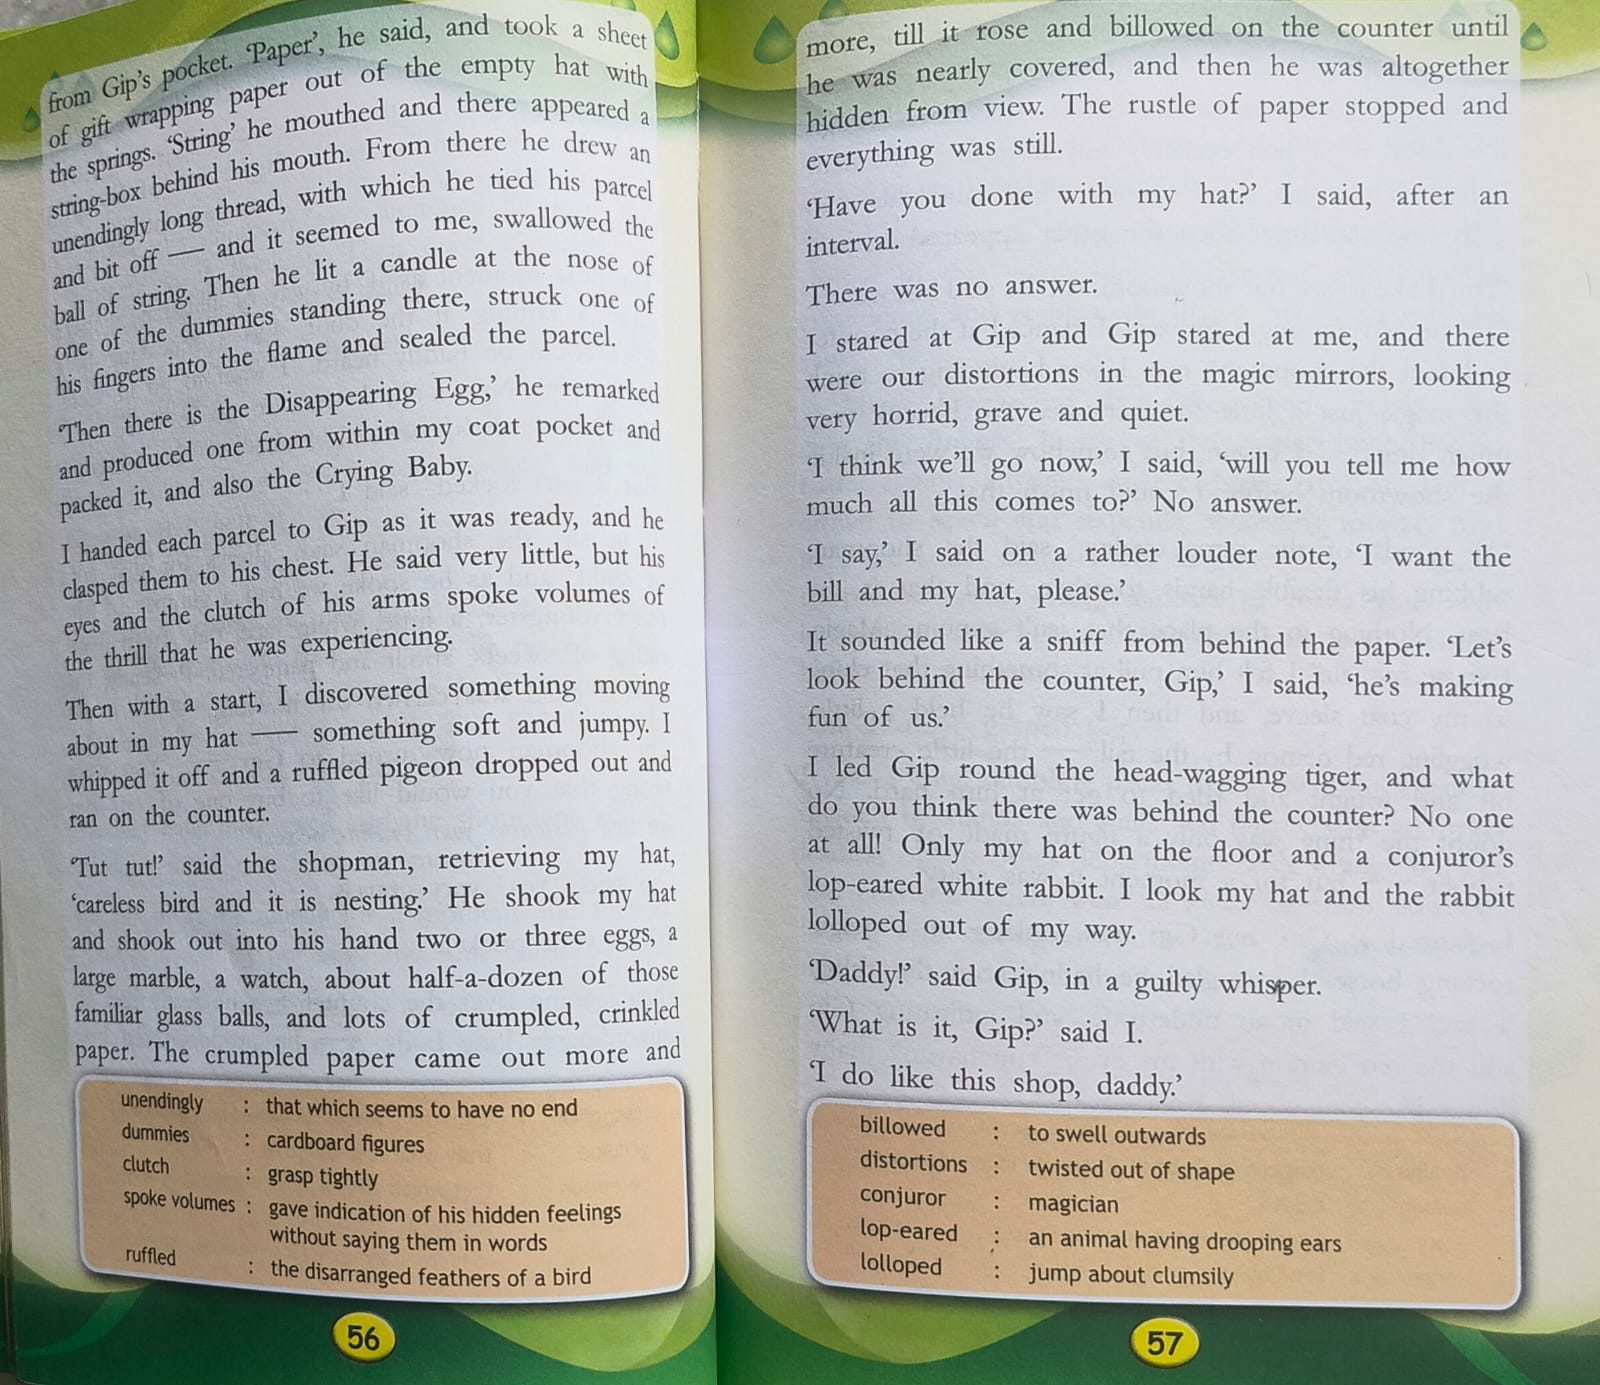 from Gip's pocket. 'Paper', he said, and took a sheet
of gift wrapping paper out of the empty hat with
the springs. 'String' he mouthed and there appeared a
string-box behind his mouth. From there he drew an
unendingly long thread, with which he tied his parcel
and bit off — and it seemed to me, swallowed the
ball of string. Then he lit a candle at the nose of
one of the dummies standing there, struck one of
his fingers into the flame and sealed the parcel.
'Then there is the Disappearing Egg,' he remarked
and produced one from within my coat pocket and
packed it, and also the Crying Baby.
I handed each parcel to Gip as it was ready, and he
clasped them to his chest. He said very little, but his
eyes and the clutch of his arms spoke volumes of
the thrill that he was experiencing.
Then with a start, I discovered something moving
about in my hat — something soft and jumpy. I
whipped it off and a ruffled pigeon dropped out and
ran on the counter.
'Tut tut!' said the shopman, retrieving my hat,
'careless bird and it is nesting.' He shook my hat
and shook out into his hand two or three eggs, a
large marble, a watch, about half-a-dozen of those
familiar glass balls, and lots of crumpled, crinkled
paper. The crumpled paper came out more and
unendingly : that which seems to have no end
dummies : cardboard figures
clutch : grasp tightly
spoke volumes : gave indication of his hidden feelings
without saying them in words
ruffled : the disarranged feathers of a bird
56
more, till it rose and billowed on the counter until
he was nearly covered, and then he was altogether
hidden from view. The rustle of paper stopped and
everything was still.
'Have you done with my hat?' I said, after an
interval.
There was no answer.
I stared at Gip and Gip stared at me, and there
were our distortions in the magic mirrors, looking
very horrid, grave and quiet.
'I think we'll go now,' I said, 'will you tell me how
much all this comes to?' No answer.
'I say,' I said on a rather louder note, 'I want the
bill and my hat, please.'
It sounded like a sniff from behind the paper. 'Let's
look behind the counter, Gip,' I said, 'he's making
fun of us.'
I led Gip round the head-wagging tiger, and what
do you think there was behind the counter? No one
at all! Only my hat on the floor and a conjuror's
lop-eared white rabbit. I look my hat and the rabbit
lolloped out of my way.
'Daddy!' said Gip, in a guilty whisper.
'What is it, Gip?' said I.
'I do like this shop, daddy.'
billowed : to swell outwards
distortions : twisted out of shape
conjuror : magician
lop-eared : an animal having drooping ears
lolloped : jump about clumsily
57